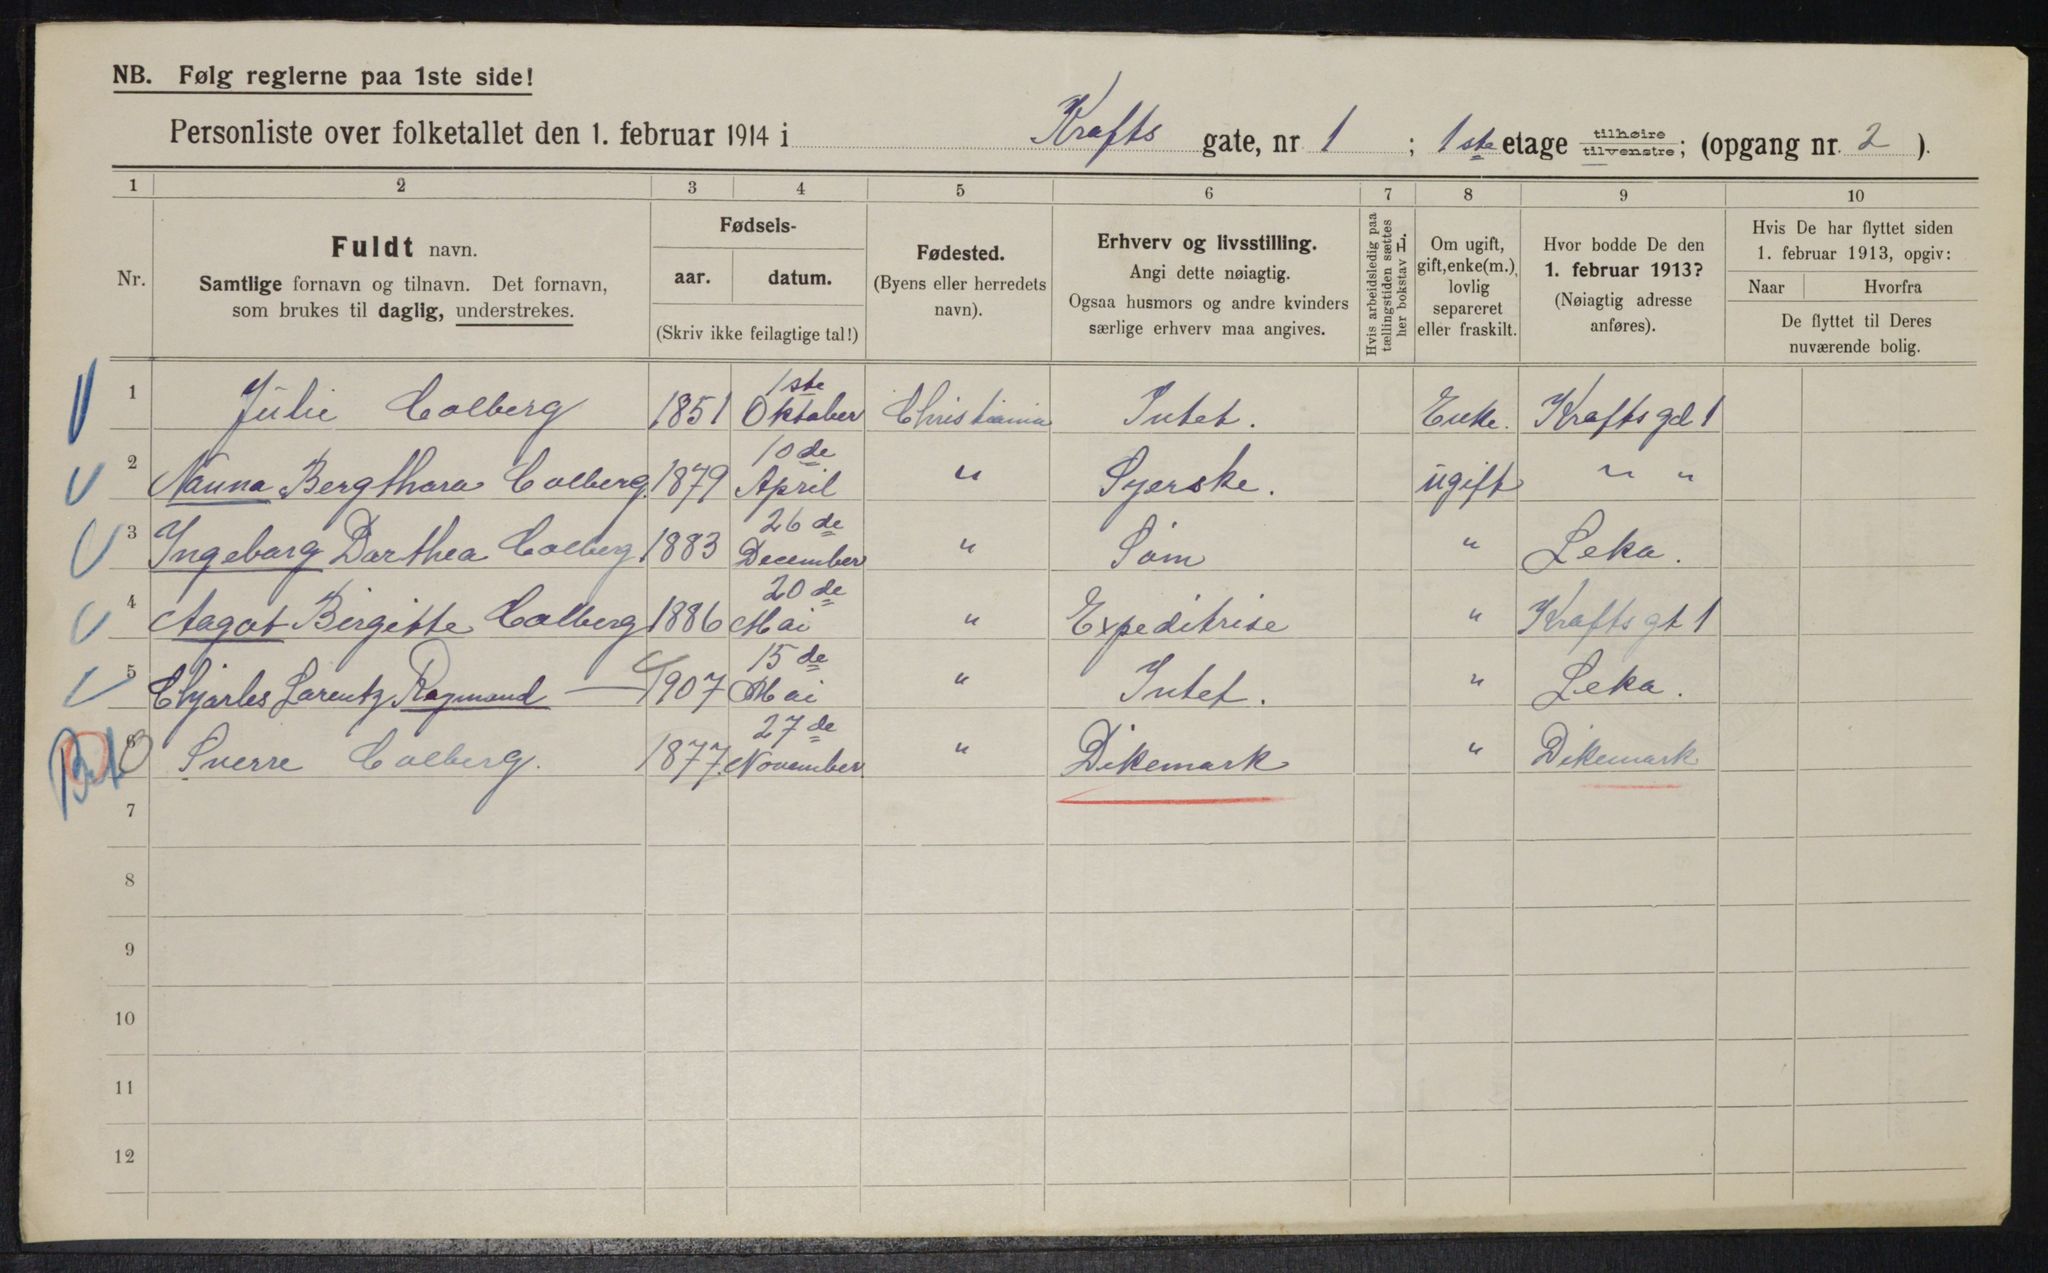 NB. Følg reglerne paa 1ste side!
Personliste over folketallet den 1. februar 1914 i Krafts gate, nr. 1 ; 1ste etage tilhøire tilvenstre; (opgang nr. 2 ).
1 2 3 4 5 6 7 8 9 10
Nr.
Fuldt navn.
Samtlige fornavn og tilnavn. Det fornavn,
som brukes til daglig, understrekes.
Fødsels-
aar. datum.
(Skriv ikke feilagtige tal!)
Fødested.
(Byens eller herredets
navn).
Erhverv og livsstilling.
Angi dette nøiagtig.
Ogsaa husmors og andre kvinders
særlige erhverv maa angives.
Hvis arbeidsledig paa
tællingstiden sættes
her bokstav L.
Om ugift,
gift, enke(m.),
lovlig
separeret
eller fraskilt.
Hvor bodde De den
1. februar 1913?
(Nøiagtig adresse
anføres).
Hvis De har flyttet siden
1. februar 1913, opgiv:
Naar Hvorfra
De flyttet til Deres
nuværende bolig.
1 Julie Colberg 1851 1ste Oktober Christiania Intet. Enke. Krafts gd 1
2 Nanna Bergthora Colberg 1879 10de April " Syerske. ugift " "
3 Ingeborg Dorthea Colberg 1883 26de December " Søm " Leka.
4 Aagot Birgitte Colberg 1886 20de Mai " Expeditrise " Krafts gt 1
5 Chjarles Lorentz Raymond — 1907 15de Mai " Intet. " Leka.
6 Sverre Colberg. 1877. 27de November " Dikemark " Dikemark
7
8
9
10
11
12